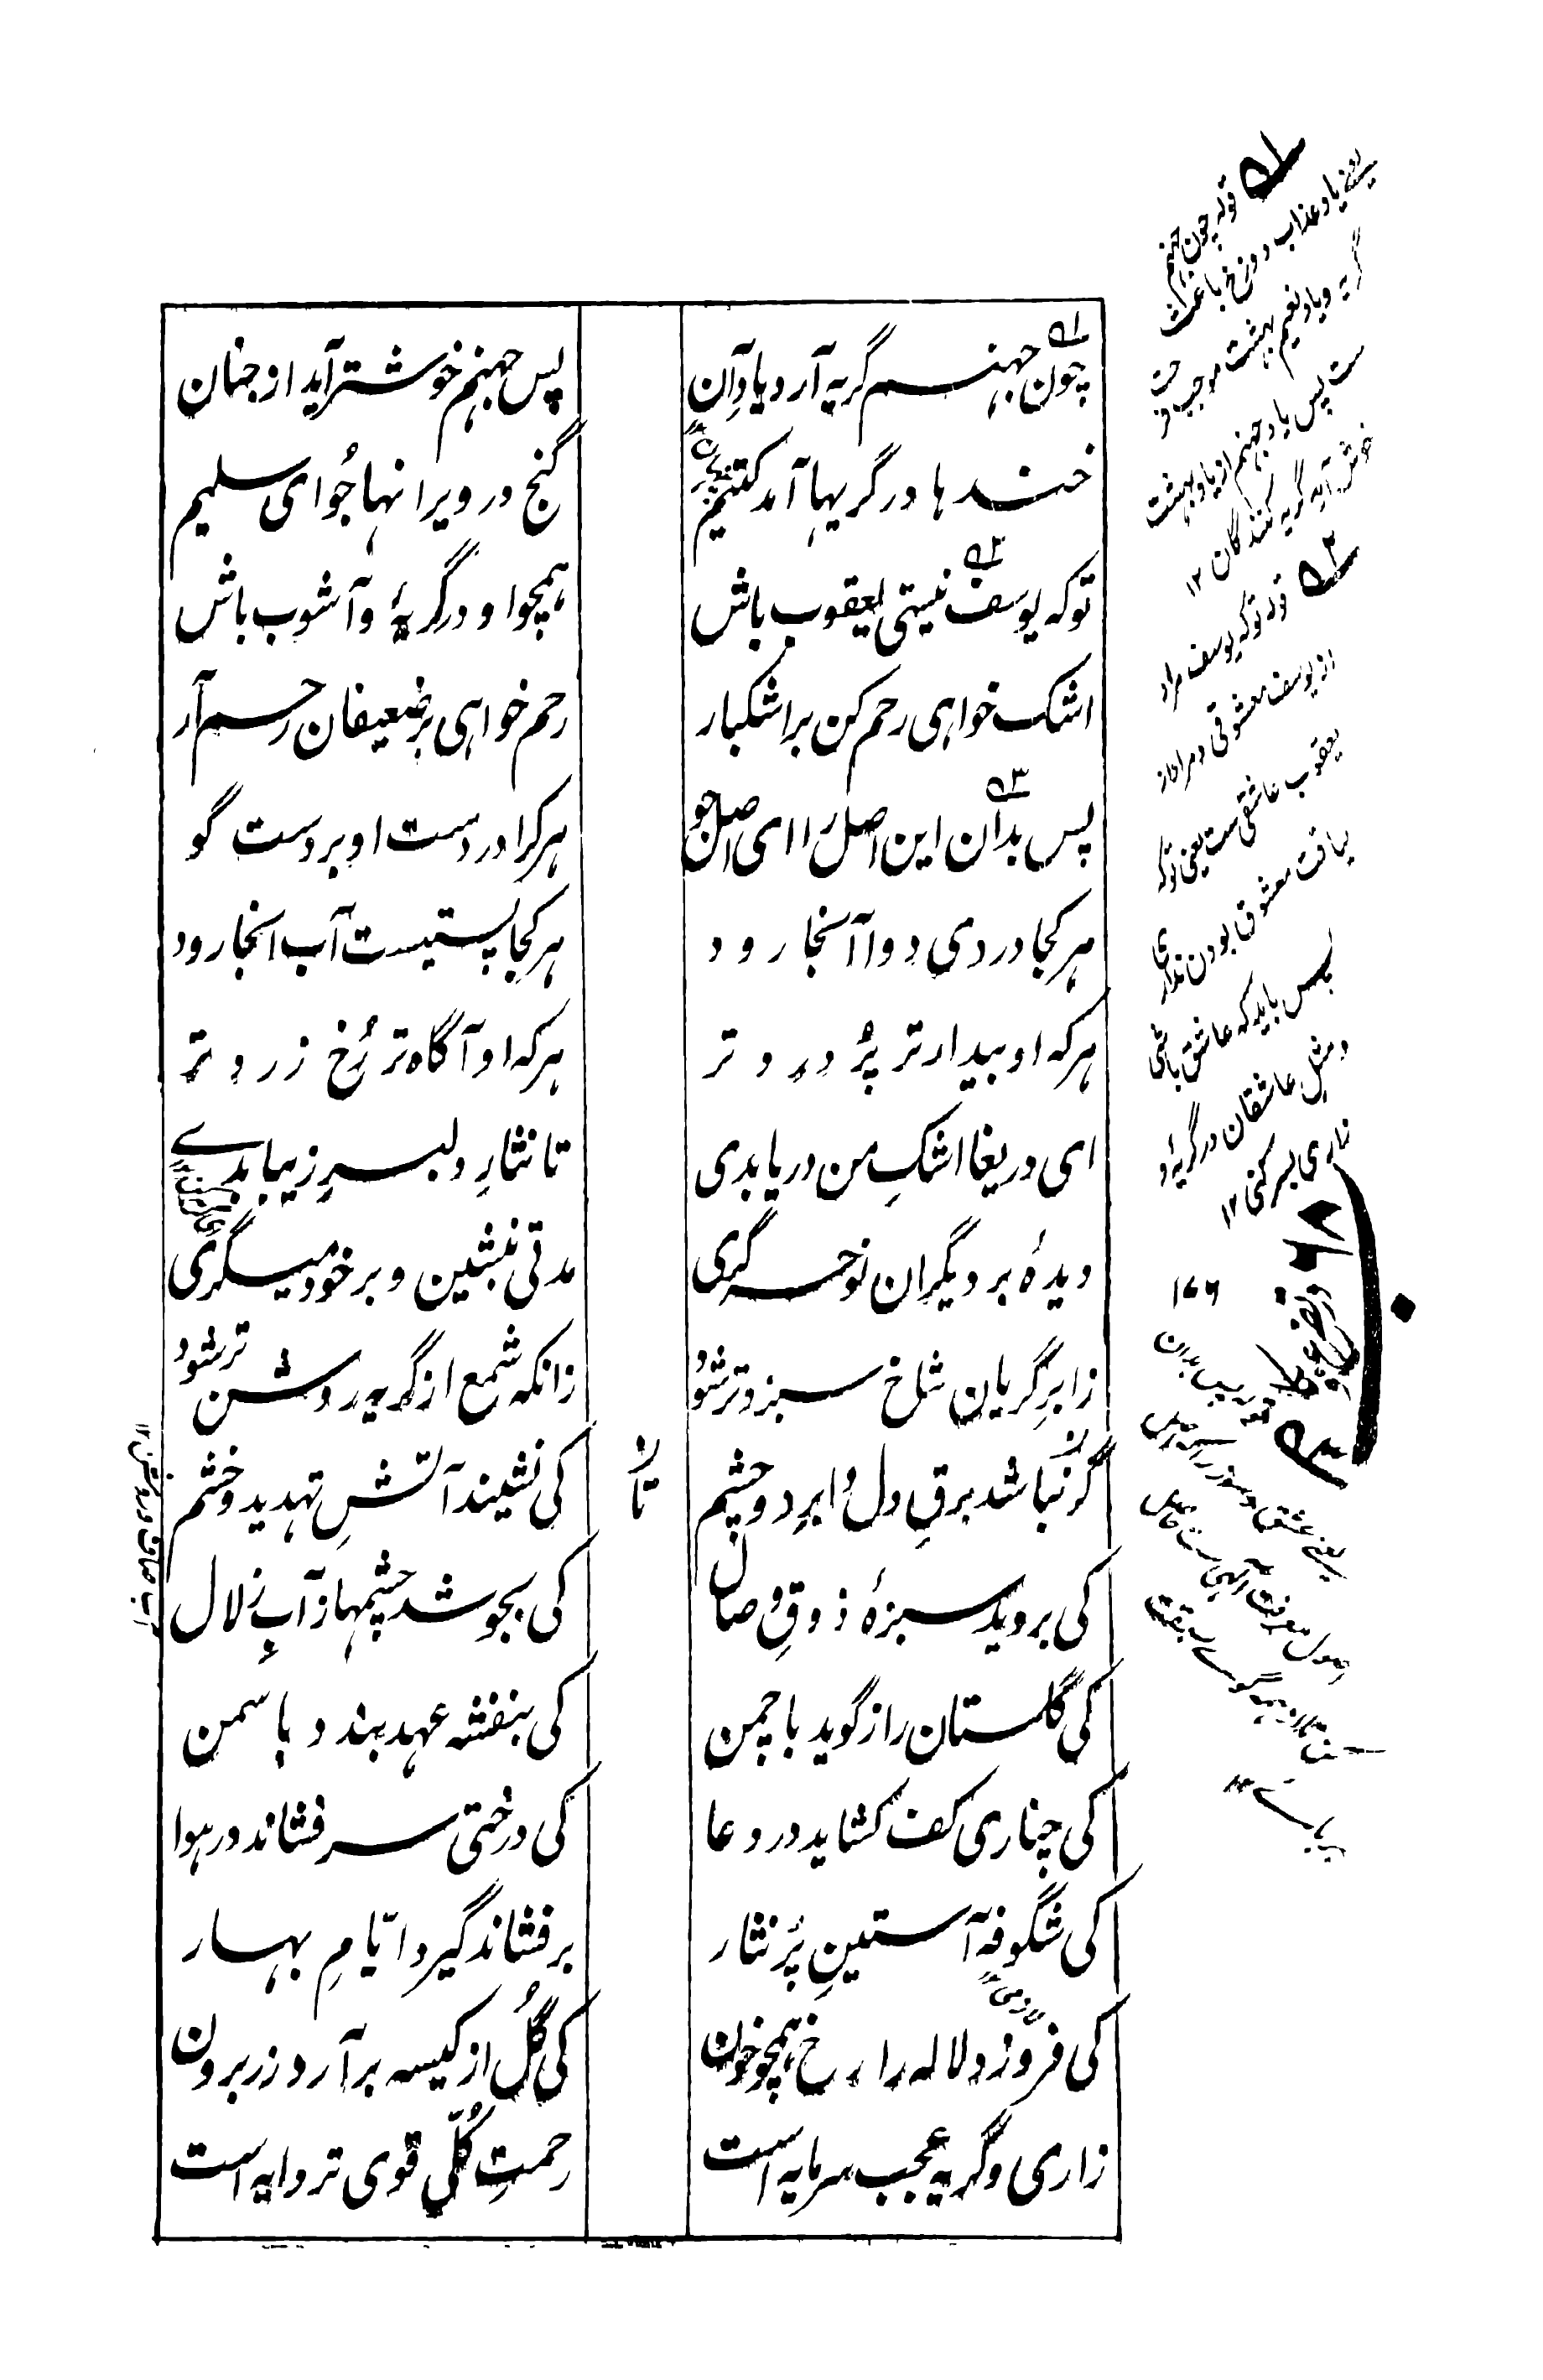 چون جہنم گریه آرد یادِ آن
پس جہنم خوشتر آید از جنان
خندہا در گریہا آمد کتیم
گنج در ویرانہا جُو ای سلیم
تو که یوسف نیستی یعقوب باش
ہمچو او در گریۂ و آشوب باش
اشک خواہی رحم کن بر اشکبار
رحم خواہی بر ضعیفان رحم آر
پس بدان این اصل را ای اصل جو
ہر کرا دردست او بردست گو
ہر کجا دردی دوا آنجا رود
ہر کجا پستیست آب آنجا رود
ہر که او بیدارتر پُر درد تر
ہر که او آگاه تر رُخ زرد تر
ای دریغا اشکِ من دریا بدی
تا نثارِ دلبرِ زیبا بدے
دیدۂ بر دیگران نوحه گری
مدتی بنشین و بر خود میگری
ز ابرِ گریان شاخ سبز و تر شود
زانکه شمع از گریه روشن تر شود
گر نباشد برقِ دل و ابرِ دو چشم
تا
کی نشیند آتشِ تہدید و خشم
کی بروید سبزۂ ذوقِ وصال
کی بجوشد چشمہا ز آبِ زلال
کی گلستان راز گوید با چمن
کی بنفشه عہد بندد با سمن
کی چناری کف کشاید در دعا
کی درختی سر فشاند در ہوا
کی شگوفه آستینِ پُر نثار
بر فشاند گیرد ایّامِ بہار
کی فروزد لاله را رخ ہمچو خون
کی گُل از کیسه برآرد زر برون
زاری و گریه عجب سرمایه است
رحمتِ کُلّی قوی تر دایه است
قوله چون جہنم
یعنی یاد عذاب دوزخ باعث
گریه و یاد نعیم بہشت موجب فرحت
ست پس یاد جہنم از یاد بہشت
خوش آید گریه کنندگان ۱۲
قوله تو که یوسف مراد
از یوسف معشوقی و مراد از
یعقوب عاشقی ست یعنی تو که
لیاقت معشوق بودن نداری
پس باید که عاشق باشی
و مثل عاشقان در گریه و
زاری بسر کنی ۱۲
۱۷۶
قوله پس بدان